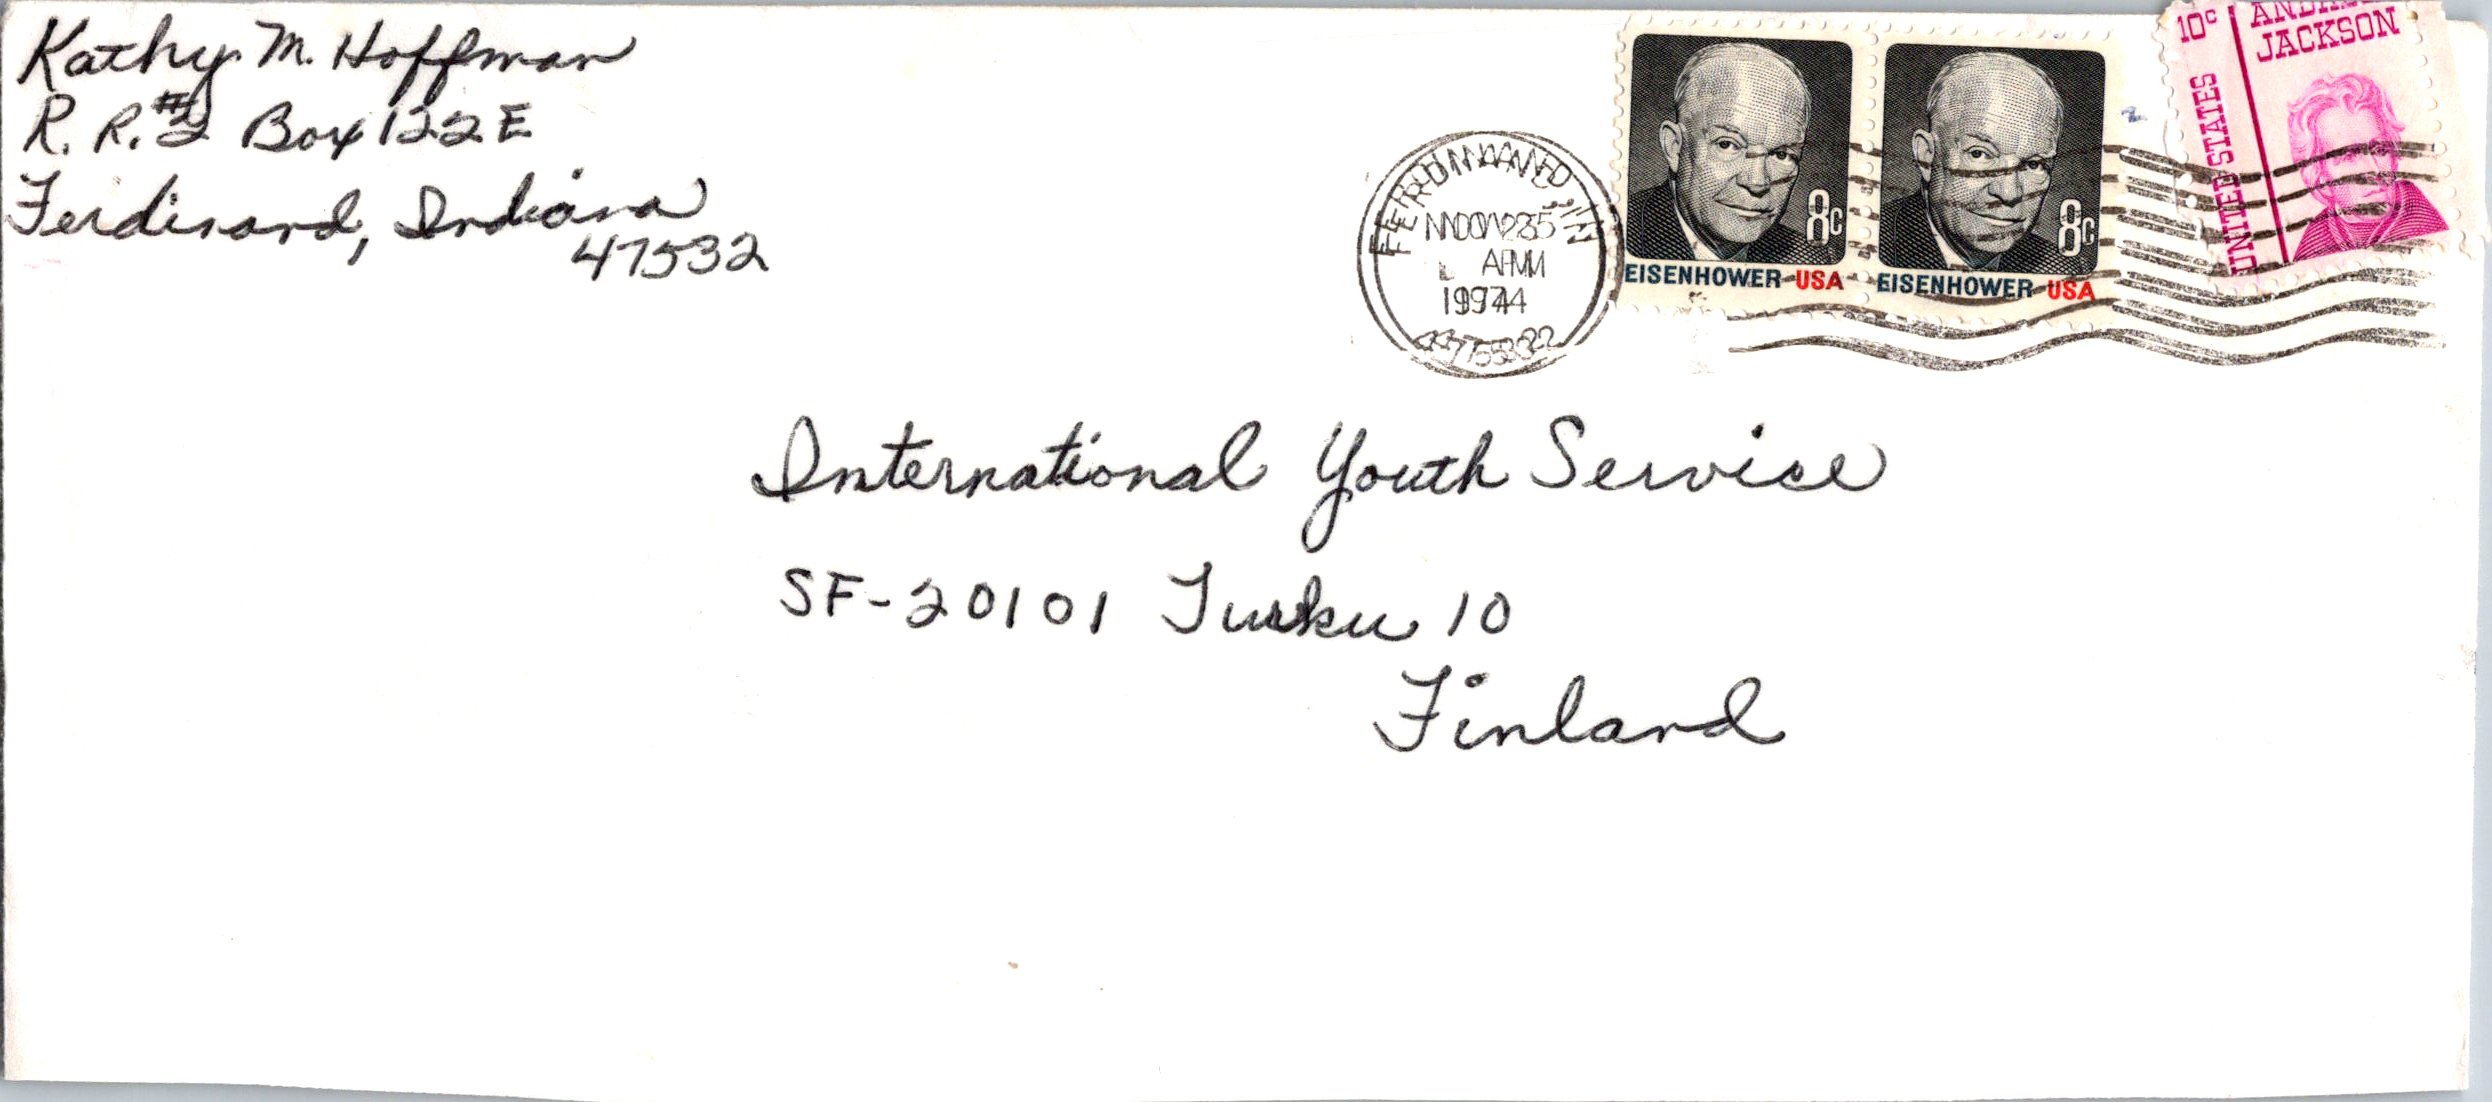 Kathy M. Hoffman
R. R. #2 Box 122E
Ferdinand, Indiana
47532
10c
ANDREW
JACKSON
UNITED STATES
8c
EISENHOWER USA
8c
EISENHOWER USA
FERDINAND IN
NOV
1974
47532
International Youth Service
SF-20101 Turku 10
Finland